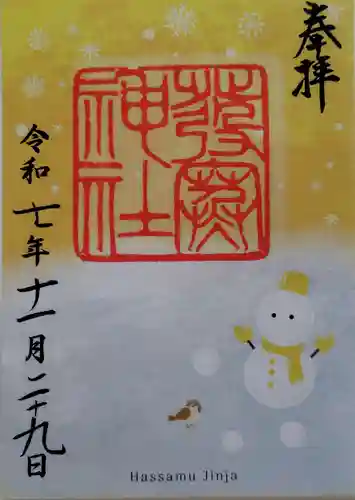 奉拝
発寒神社
令和七年十一月二十九日
Hassamu Jinja